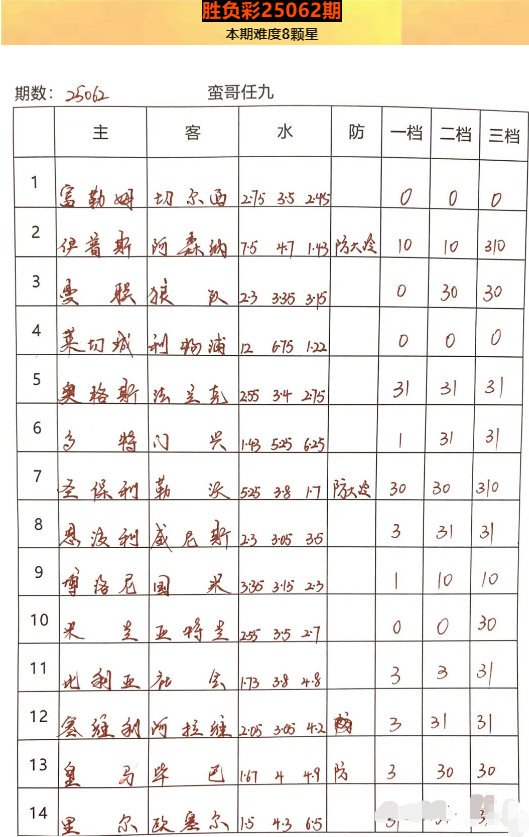 胜负彩25062期
本期难度8颗星
期数: 25062 蛮哥任九
主 客 水 防 一档 二档 三档
1 富勒姆 切尔西 2.75 3.5 2.45 0 0 0
2 伊普斯 阿森纳 7.5 4.7 1.43 防大冷 10 10 310
3 曼联 狼队 2.3 3.35 3.15 0 30 30
4 莱切城 利物浦 12 6.75 1.22 0 0 0
5 奥格斯 法兰克 2.55 3.4 2.75 31 31 31
6 多特 门兴 1.43 5.25 6.25 1 31 31
7 圣保利 勒沃 5.25 3.8 1.7 防大冷 30 30 310
8 恩波利 威尼斯 2.3 3.05 3.5 3 31 31
9 博洛尼 国米 3.35 3.15 2.3 1 10 10
10 米兰 亚特兰 2.55 3.5 2.7 0 0 30
11 比利亚 社会 1.73 3.8 4.8 3 3 31
12 塞维利 阿拉维 2.05 3.05 4.2 3 31 31
13 皇马 毕巴 1.67 4 4.9 防 3 30 30
14 里尔 欧塞尔 1.5 4.3 6.5